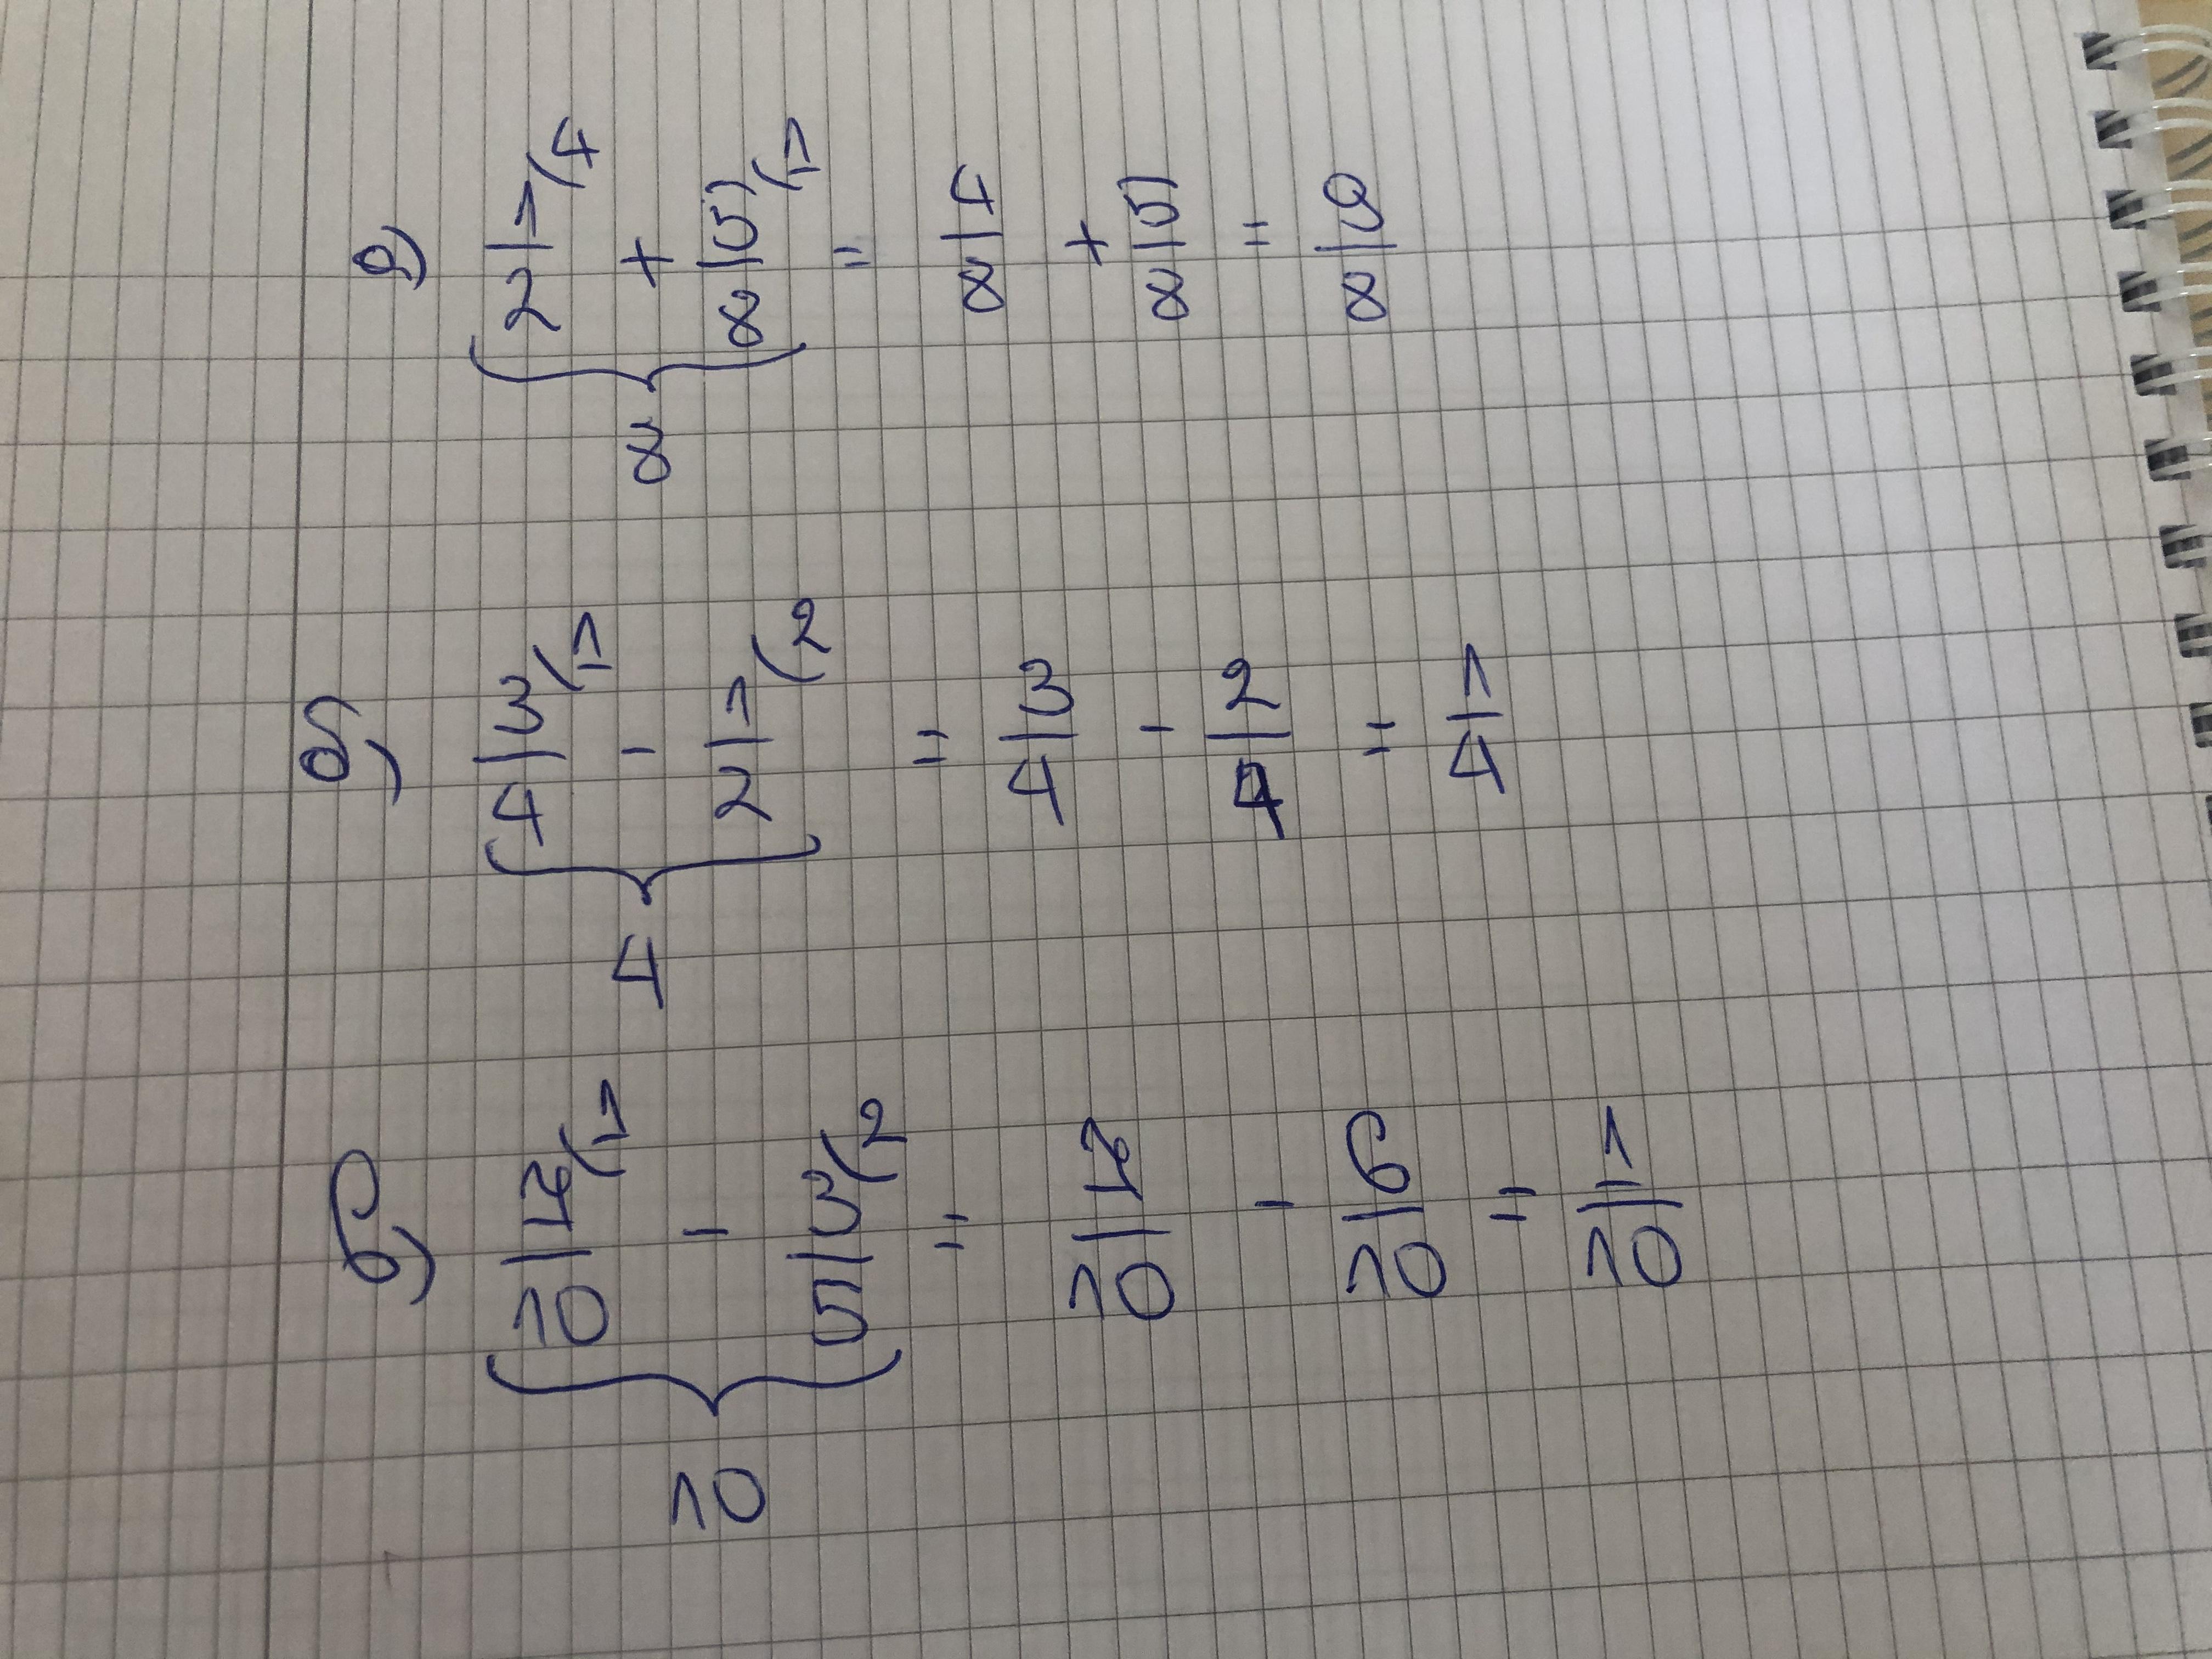 а) 1/2 (4 + 5/8 (1 = 4/8 + 5/8 = 9/8
8
б) 3/4 (1 - 1/2 (2 = 3/4 - 2/4 = 1/4
4
в) 7/10 (1 - 3/5 (2 = 7/10 - 6/10 = 1/10
10